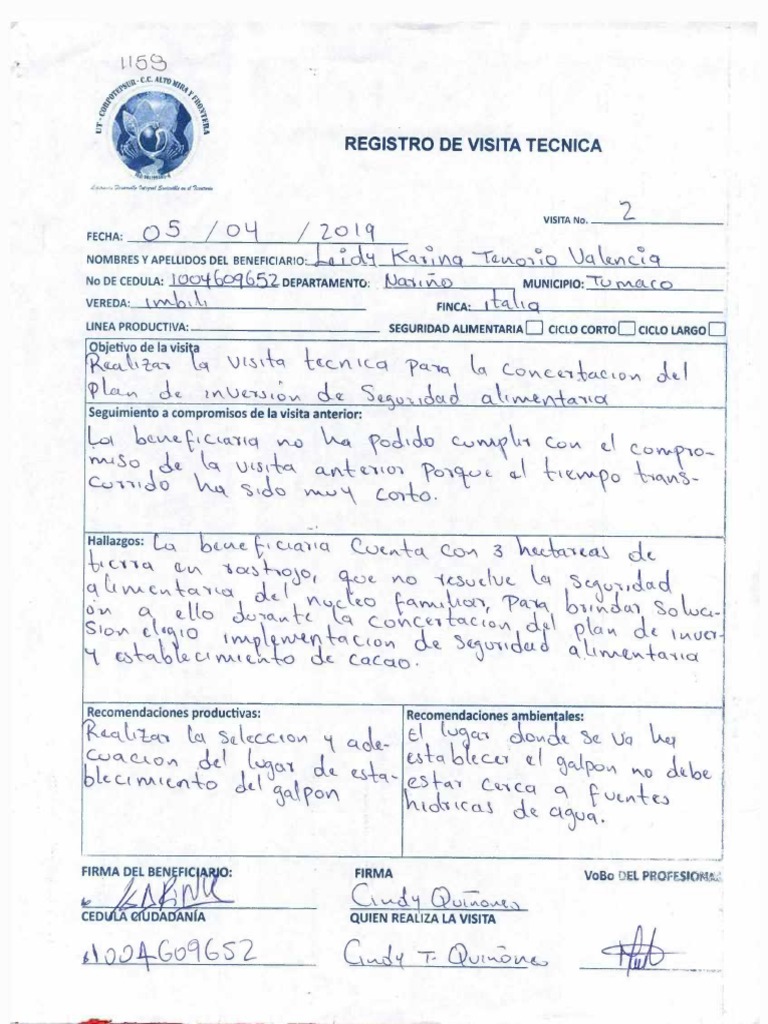 1159
UT - CORPOTEPSUR - C.C. ALTO MIRA Y FRONTERA
REGISTRO DE VISITA TECNICA
VISITA No. 2
FECHA: 05 / 04 / 2019
NOMBRES Y APELLIDOS DEL BENEFICIARIO: Leidy Karina Tenorio Valencia
No DE CEDULA: 1004609652 DEPARTAMENTO: Nariño MUNICIPIO: Tumaco
VEREDA: imbili FINCA: italia
LINEA PRODUCTIVA: SEGURIDAD ALIMENTARIA CICLO CORTO CICLO LARGO
Objetivo de la visita
Realizar la visita tecnica para la concertacion del
Plan de inversión de Seguridad alimentaria
Seguimiento a compromisos de la visita anterior:
La beneficiaria no ha podido cumplir con el compro-
miso de la visita anterior porque el tiempo trans-
currido ha sido muy corto.
Hallazgos: La beneficiaria cuenta con 3 hectareas de
tierra en rastrojo, que no resuelve la seguridad
alimentaria del nucleo familiar, Para brindar soluci-
ón a ello durante la concertacion del plan de inver-
sion eligio implementacion de seguridad alimentaria
y establecimiento de cacao.
Recomendaciones productivas:
Realizar la seleccion y ade-
cuacion del lugar de esta-
blecimiento del galpon
Recomendaciones ambientales:
El lugar donde se va ha
establecer el galpon no debe
estar cerca a fuentes
hidricas de agua.
FIRMA DEL BENEFICIARIO: FIRMA VoBo DEL PROFESIONAL
KARINA Cindy Quiñones
CEDULA CIUDADANÍA QUIEN REALIZA LA VISITA
1004609652 Cindy T. Quiñones